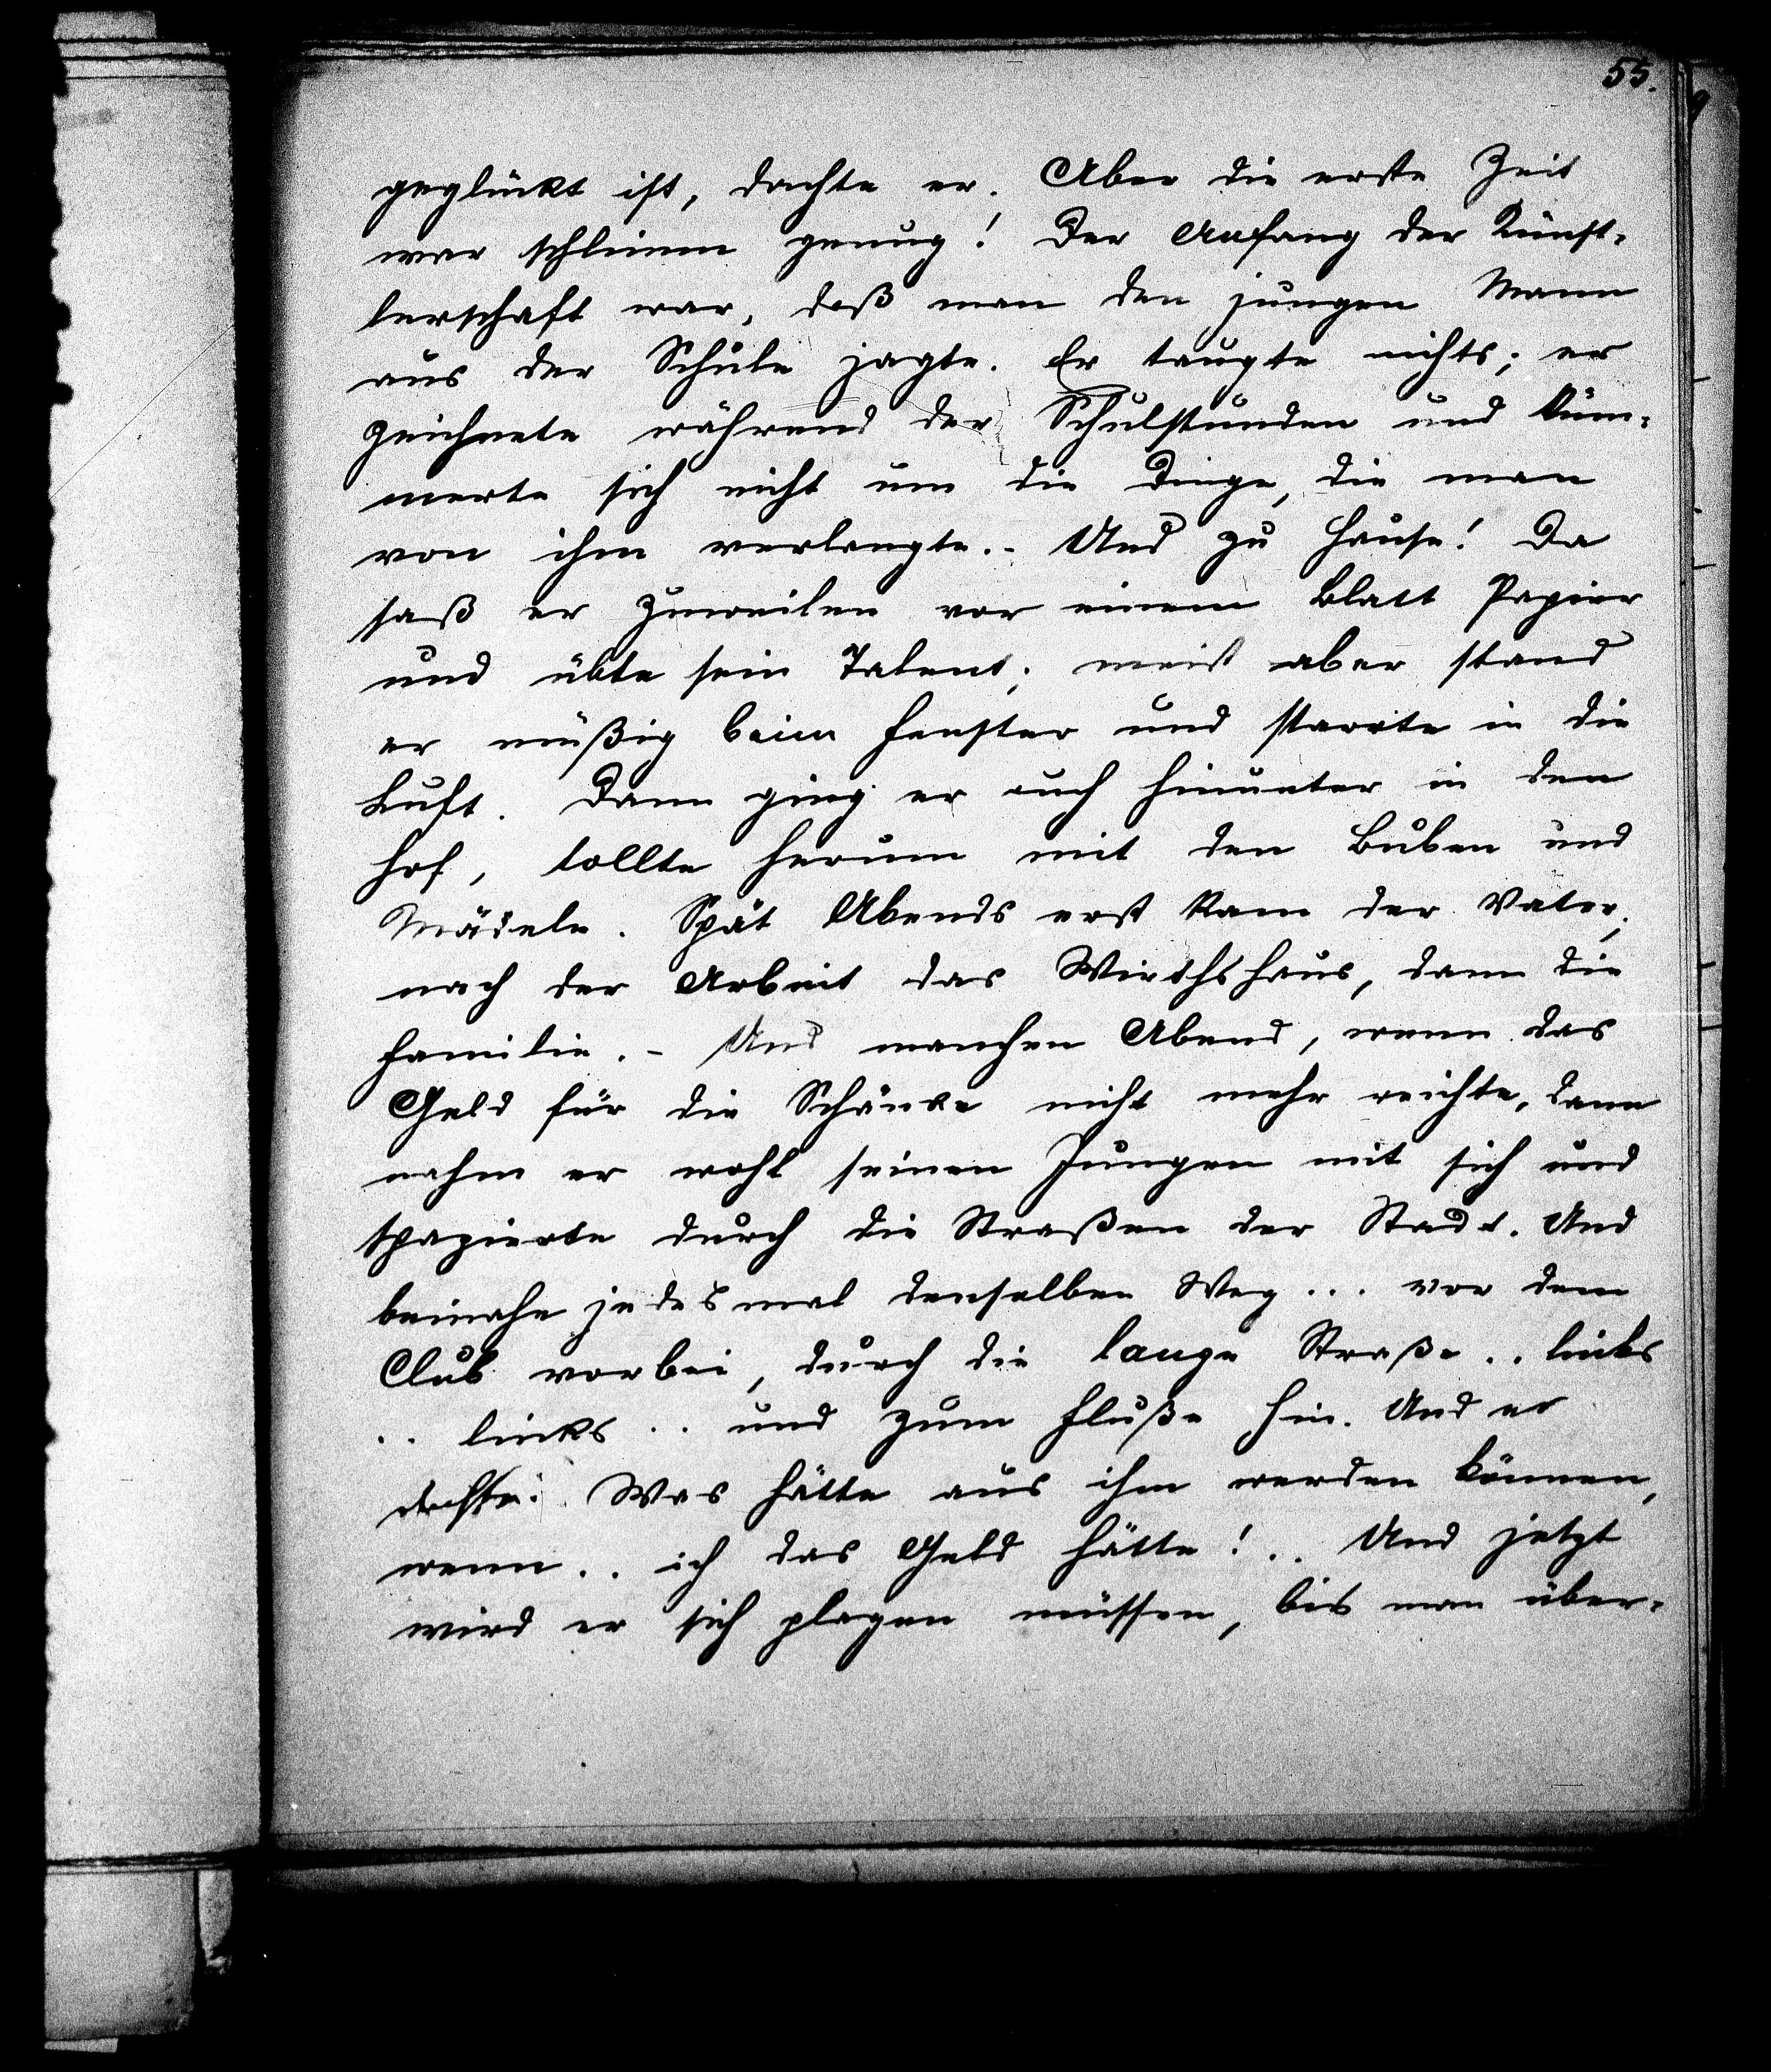 55.
geglückt ist, dachte er. Aber die erste Zeit
war schlimm genug! Der Anfang der Künst-
lerschaft war, daß man den jungen Mann
aus der Schule jagte. Er taugte nichts; er
zeichnete während der Schulstunden und küm-
merte sich nicht um die Dinge, die man
von ihm verlangte.- Und zu Hause! Da
saß er zuweilen vor einem Blatt Papier
und übte sein Talent; meist aber stand
er müßig beim Fenster und starrte in die
Luft. Dann ging er auch hinunter in den
Hof, tollte herum mit den Buben und
Mädeln. Spät Abends erst kam der Vater;
nach der Arbeit das Wirthshaus, dann die
Familie.- Und manchen Abend, wenn das
Geld für die Schänke nicht mehr reichte, dann
nahm er wohl seinen Jungen mit sich und
spazierte durch die Straßen der Stadt. Und
beinahe jedesmal denselben Weg... vor dem
Club vorbei, durch die lange Straße.. links
.. links .. und zum Fluße hin. Und er
dachte: Was hätte aus ihm werden können,
wenn.. ich das Geld hätte!.. Und jetzt
wird er sich plagen müssen, bis man über-